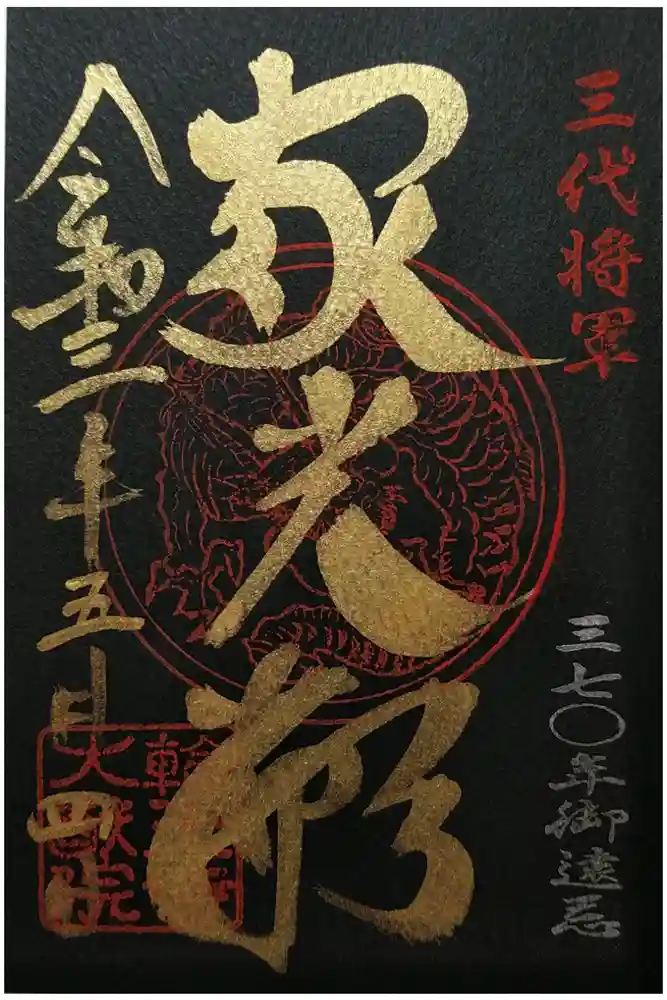 三代将軍
三七〇年御遠忌
家光廟
令和三年五月四日
大猷院